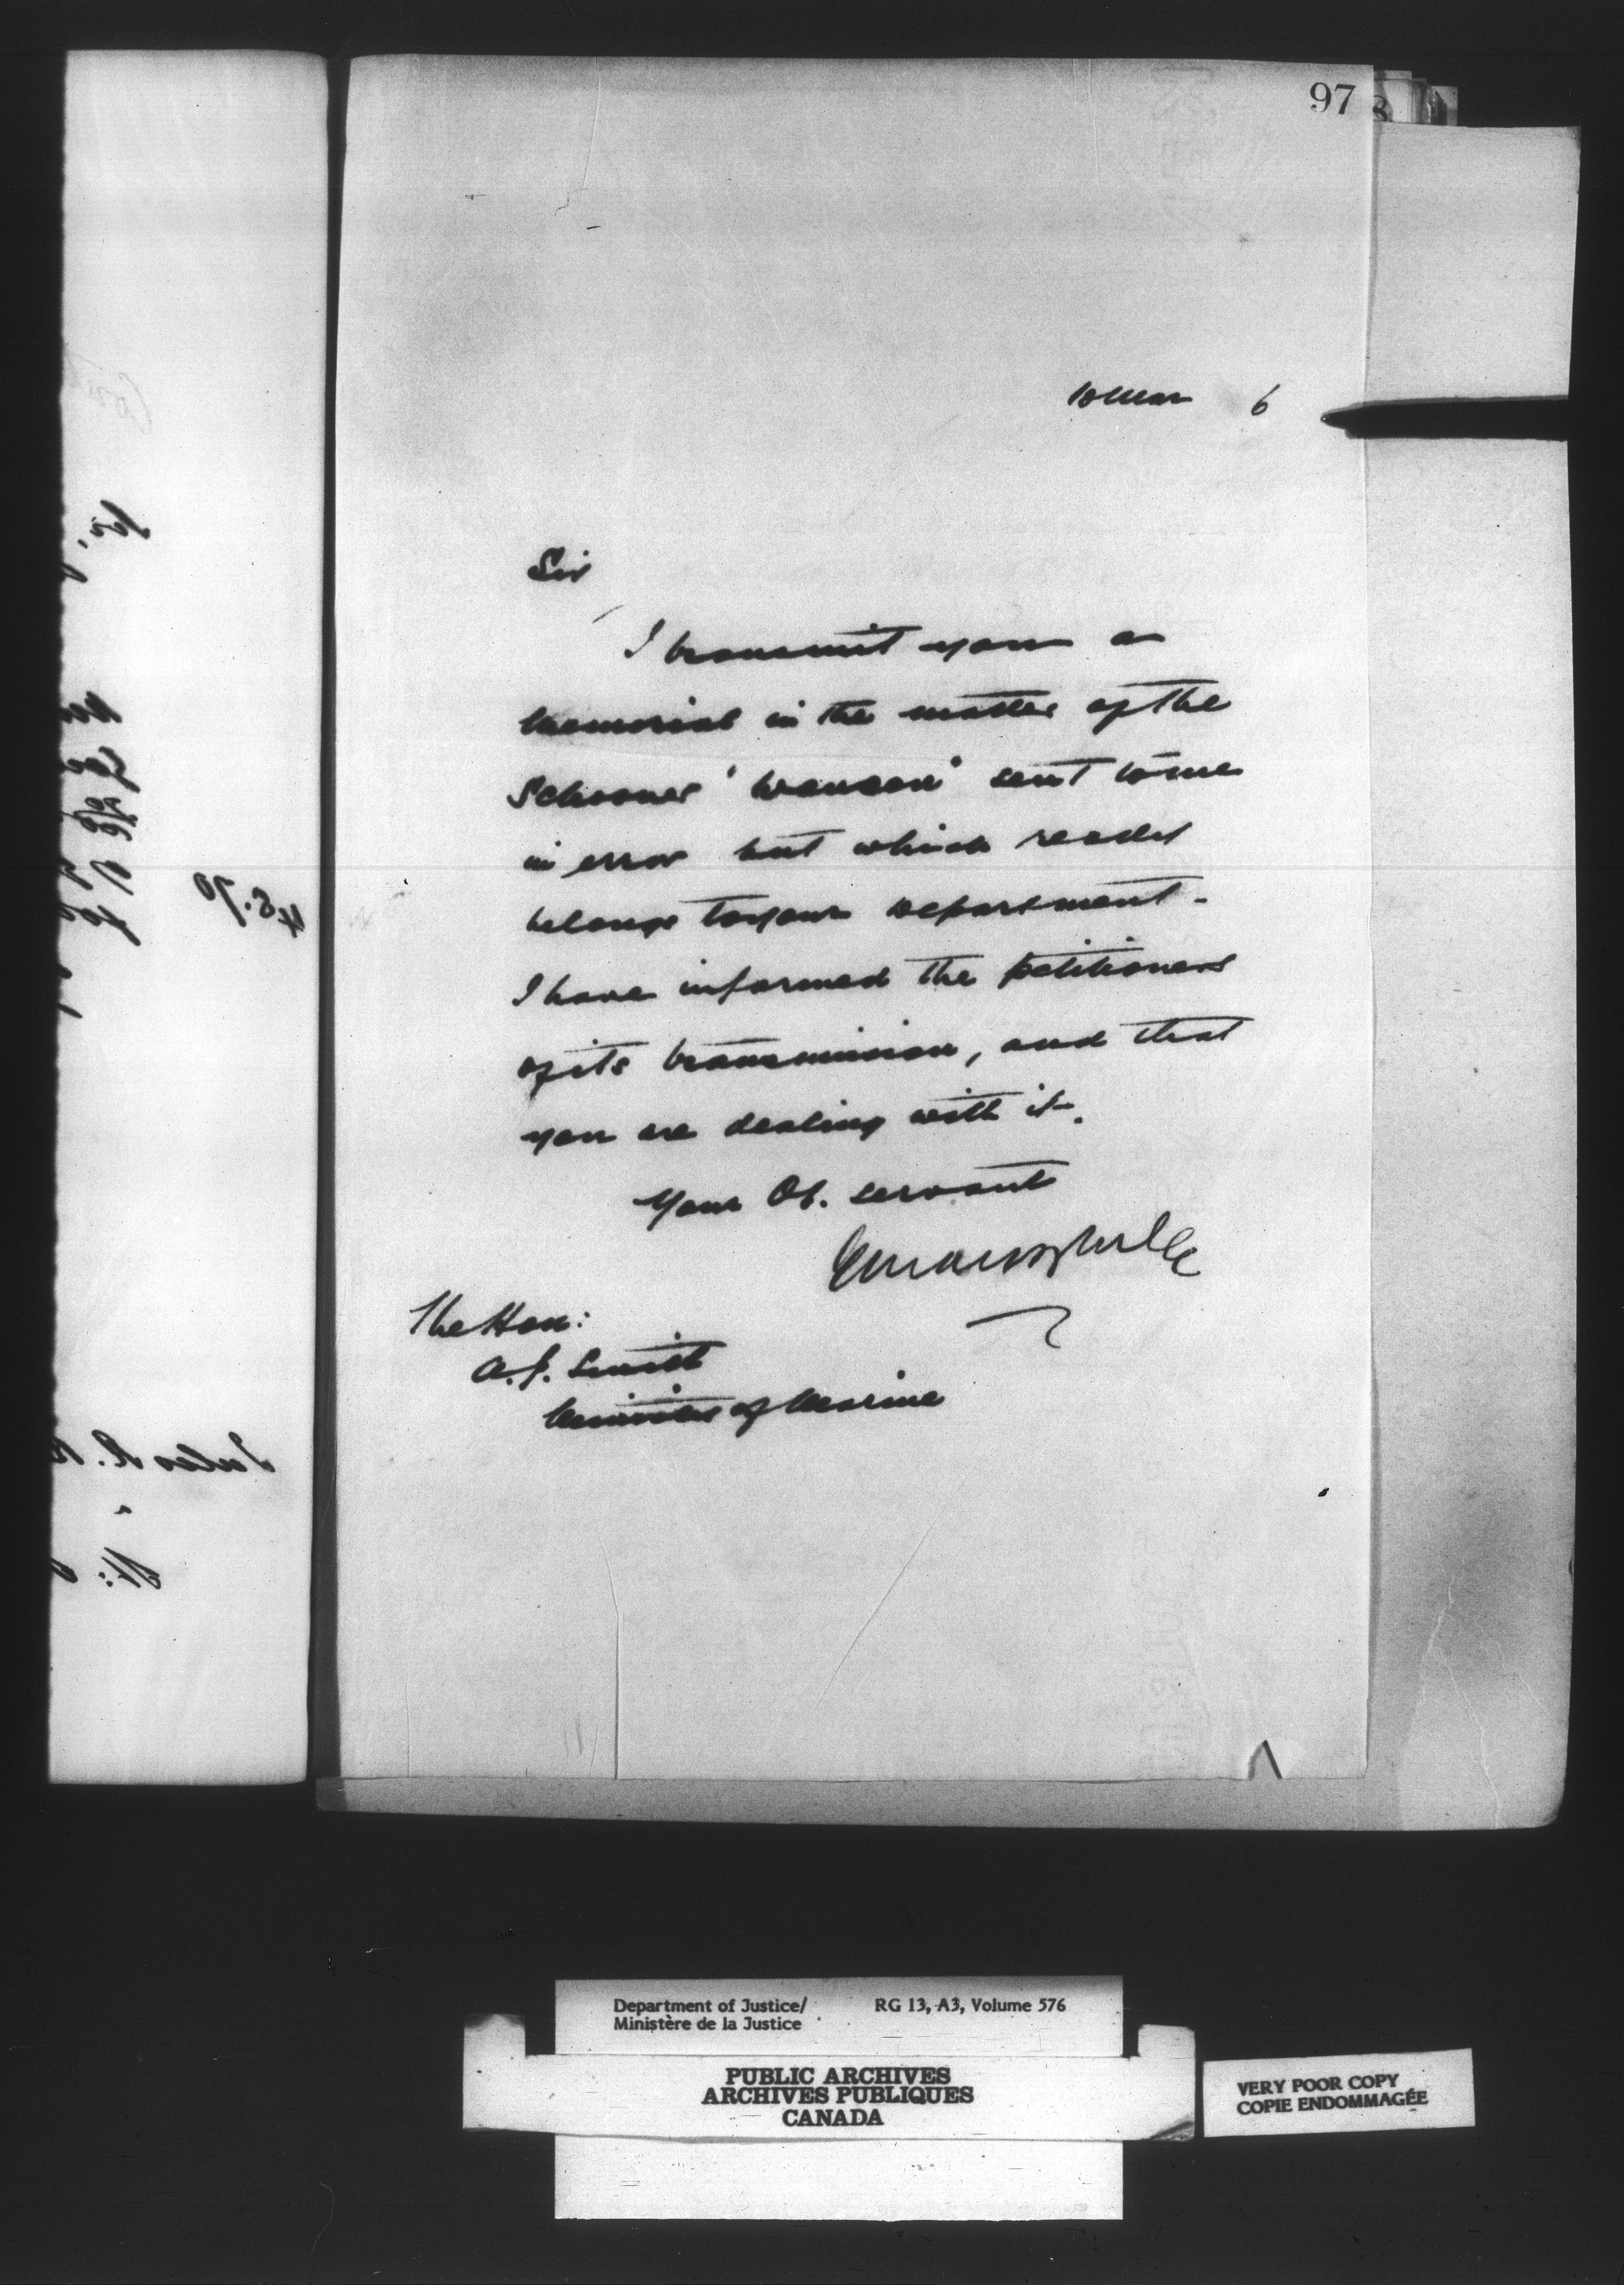 97
10 Mar 6
Sir
I transmit you a
memorial in the matter of the
Schooner ' ' sent to me
in error but which really
belongs to your department -
I have informed the petitioners
of its transmission, and that
you are dealing with it.
Your Ob. servant
The Hon:
A. J. Smith
Minister of Marine
Department of Justice/
Ministère de la Justice
RG 13, A3, Volume 576
PUBLIC ARCHIVES
ARCHIVES PUBLIQUES
CANADA
VERY POOR COPY
COPIE ENDOMMAGÉE